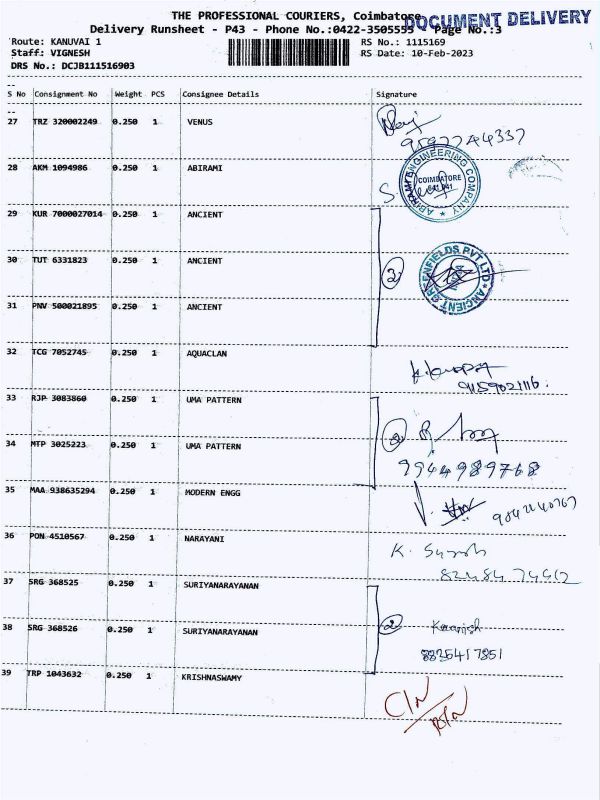 THE PROFESSIONAL COURIERS, Coimbatore
DOCUMENT DELIVERY
Delivery Runsheet - P43 - Phone No.:0422-3505555 Page No.:3
Route: KANUVAI 1 RS No.: 1115169
Staff: VIGNESH RS Date: 10-Feb-2023
DRS No.: DCJB111516903
S No Consignment No Weight PCS Consignee Details Signature
27 TRZ 320002249 0.250 1 VENUS
95977244337
28 AKM 1094986 0.250 1 ABIRAMI
ABIRAMI ENGINEERING COMPANY
COIMBATORE
641 041
29 KUR 7000027014 0.250 1 ANCIENT
30 TUT 6331823 0.250 1 ANCIENT
3
ANCIENT GREENFIELDS PVT LTD
31 PNV 500021895 0.250 1 ANCIENT
32 TCG 7052745 0.250 1 AQUACLAN
9159021116.
33 RJP 3083860 0.250 1 UMA PATTERN
2
34 MTP 3025223 0.250 1 UMA PATTERN
9944989768
35 MAA 938635294 0.250 1 MODERN ENGG
36 PON 4510567 0.250 1 NARAYANI
K.
37 SRG 368525 0.250 1 SURIYANARAYANAN
2
38 SRG 368526 0.250 1 SURIYANARAYANAN
8835417851
39 TRP 1043632 0.250 1 KRISHNASWAMY
C/N